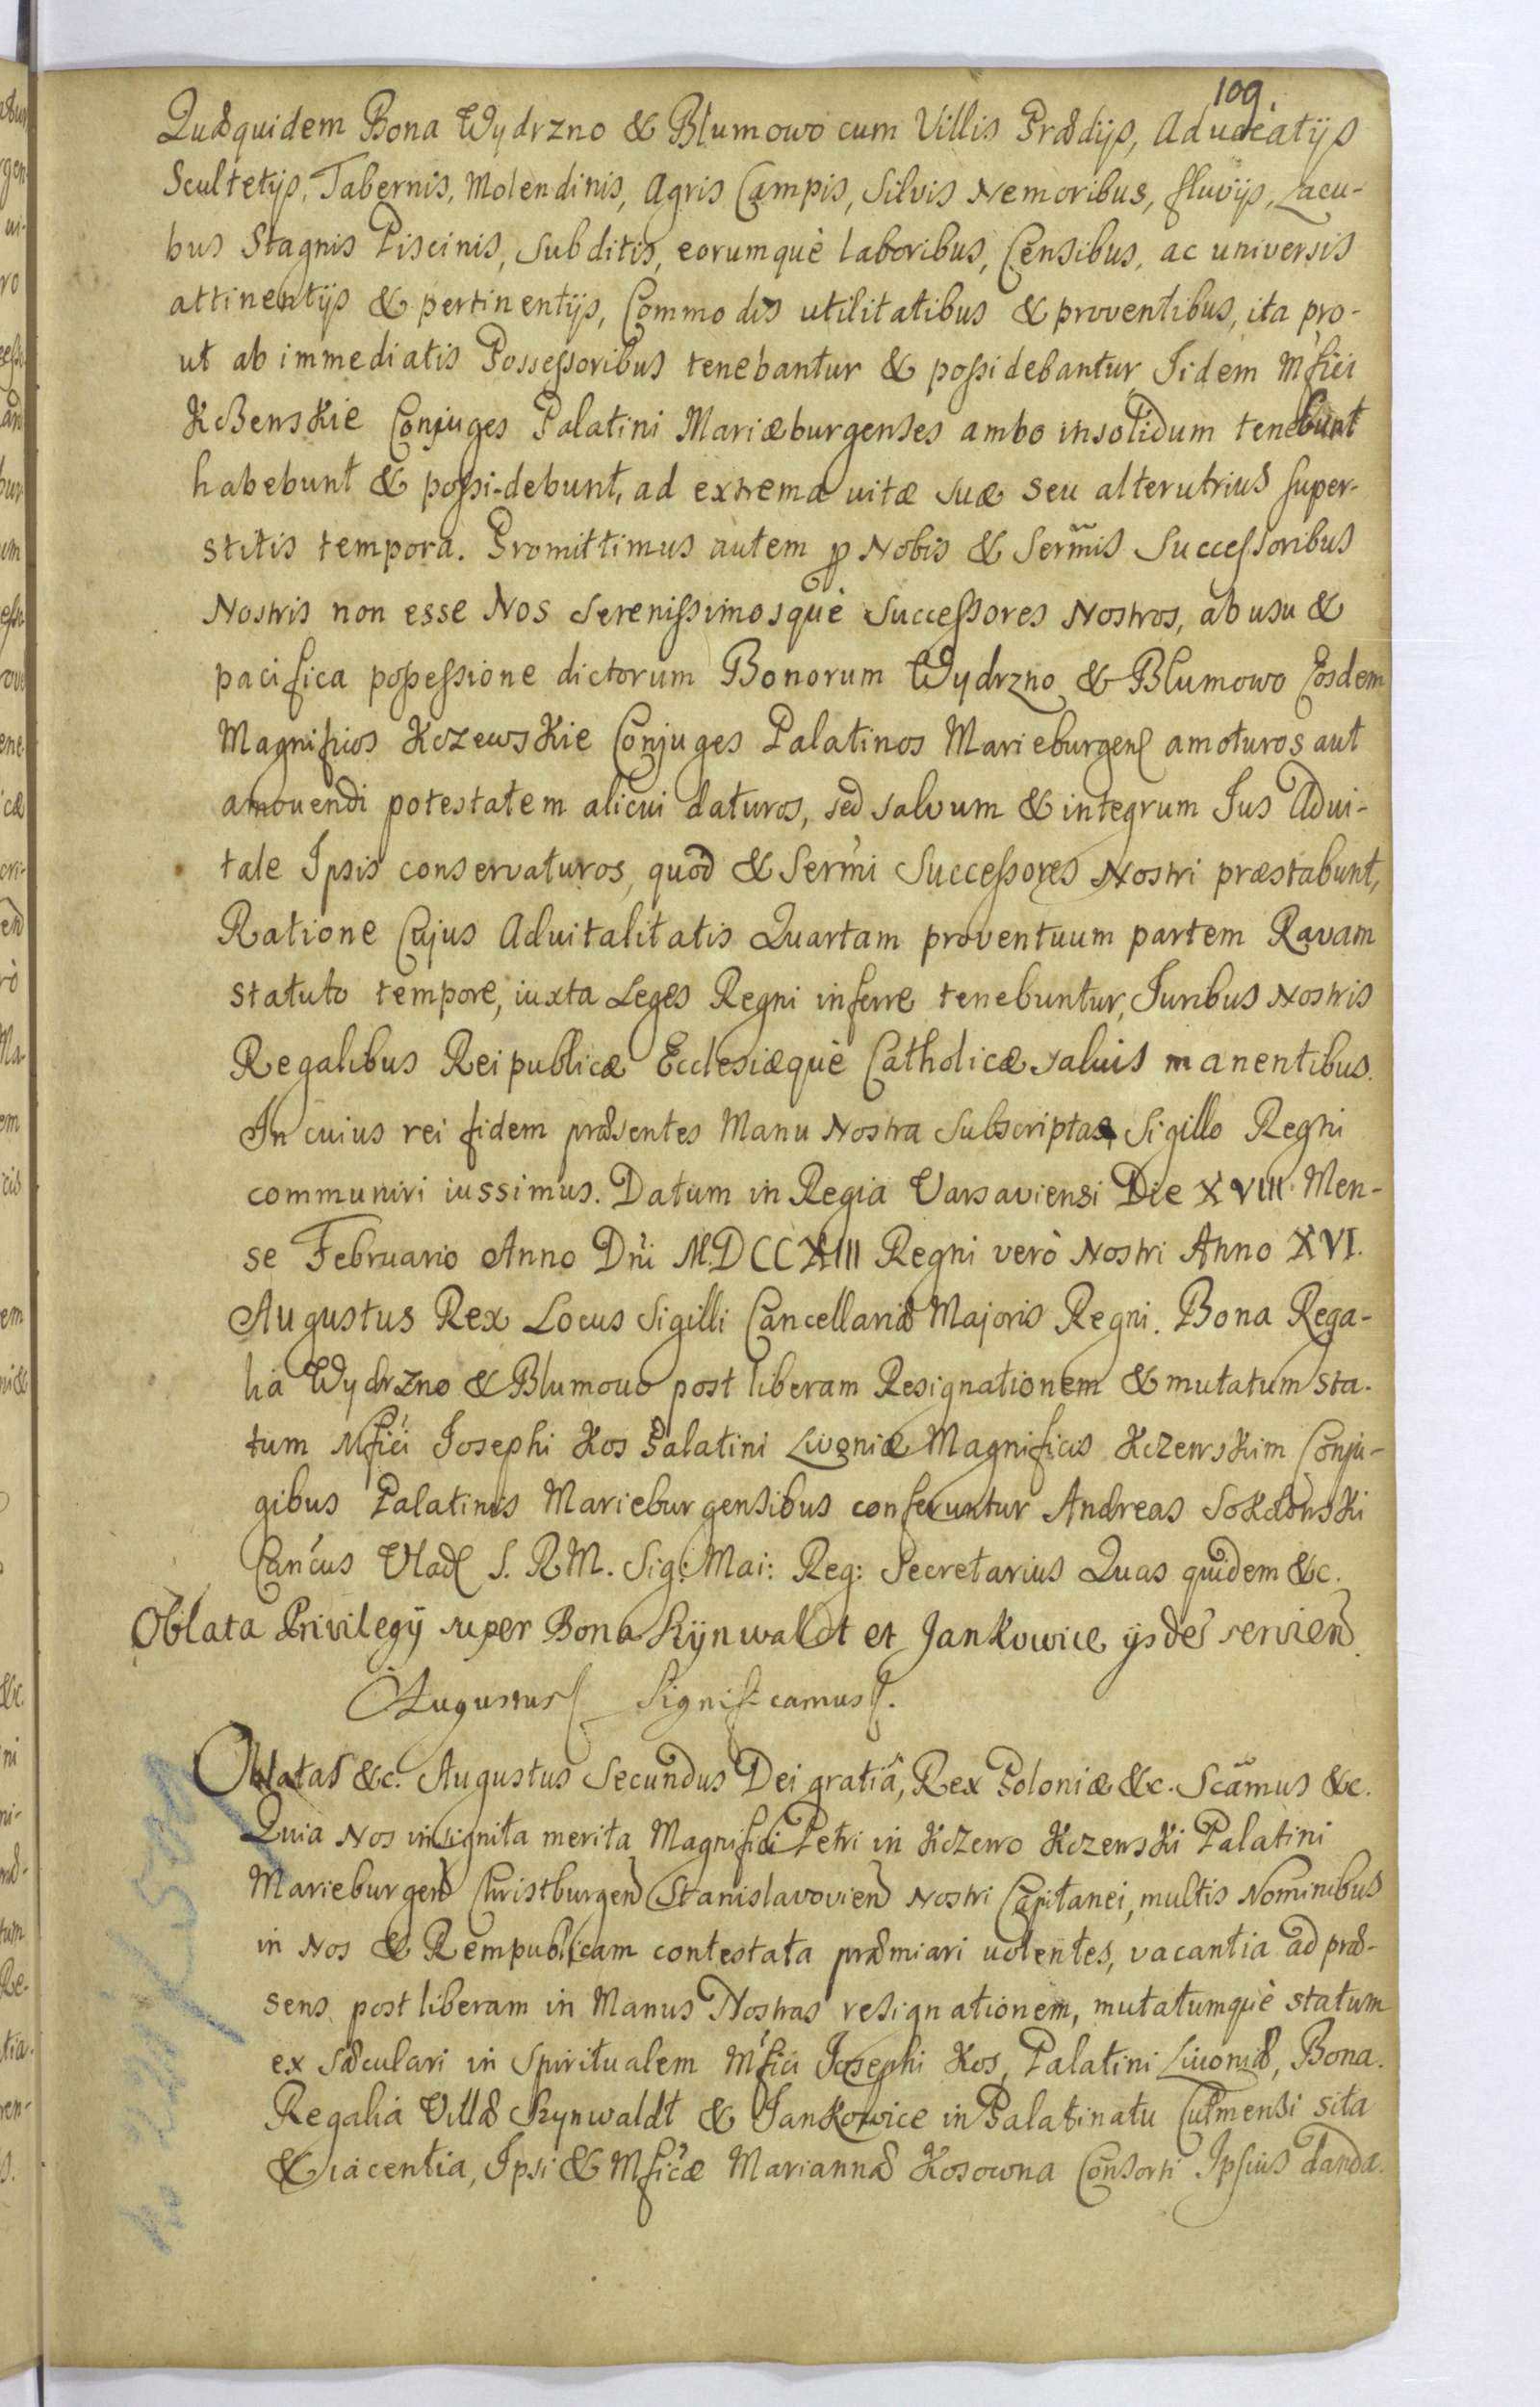 109.
Quæquidem Bona Wydrzno & Blumowo cum Villis Prædijs, Aduocatijs
Scultetijs, Tabernis, Molendinis, Agris Campis, Silvis Nemoribus, fluvijs, Lacu-
bus Stagnis Piscinis, Subditis, eorumquè laboribus, Censibus, ac universis
attinentijs & pertinentijs, Commodis utilitatibus & proventibus, ita pro-
ut ab immediatis Possessoribus tenebantur & possidebantur Iidem Mfici
Conjuges Palatini Mariæburgenses ambo insolidum tenebunt
habebunt & possi-debunt, ad extrema uitæ suæ seu alterutrius super-
stitis tempora. Promittimus autem p Nobis & Sermis Successoribus
Nostris non esse Nos Serenissimosquè Successores Nostros, ab usu &
pacifica possessione dictorum Bonorum Wydrzno & Blumowo Eosdem
Magnificos Kczewskie Conjuges Palatinos Marieburgens amoturos aut
amouendi potestatem alicui daturos, sed salvum & integrum Jus Adui-
tale Ipsis conservaturos, quod & Sermi Successores Nostri præstabunt,
Ratione Cujus Aduitalitatis Quartam proventuum partem Ravam
statuto tempore, iuxta Leges Regni inferre tenebuntur, Juribus Nostris
Regalibus Reipublicæ Ecclesiæquè Catholicæ saluis manentibus.
In cuius rei fidem præsentes Manu Nostra Subscriptas, Sigillo Regni
communiri iussimus. Datum in Regia Varsaviensi Die XVIII. Men-
se Februario Anno Dni M.DCCXIII Regni verò Nostri Anno XVI.
Augustus Rex Locus Sigilli Cancellariæ Majoris Regni. Bona Rega-
lia Wydrzno & Blumouo post liberam Resignationem & mutatum sta-
tum Mfici Josephi Kos Palatini Livoniæ Magnificis Kczewskim Conju-
gibus Palatinis Marieburgensibus conferuntur Andreas
Cancus Vlad S. R M. Sig: Mai: Reg: Secretarius Quas quidem &c.
Oblata Privilegij super Bona Rynwaldt et Jankowice ijsdem servien
Augustus Significamus
Oblatas &c. Augustus Secundus Dei gratiâ, Rex Poloniæ &c. Scamus &c.
Quia Nos insignita merita Magnifici Petri in Kczewo Kczewski Palatini
Marieburgen Christburgen Stanislavovien Nostri Capitanei, multis Nominibus
in Nos & Rempublicam contestata præmiari uolentes, vacantia ad præ-
sens post liberam in Manus Nostras resignationem, mutatumquè statum
ex sæculari in Spiritualem Mfici Josephi Kos, Palatini Liuoniæ, Bona
Regalia Villæ Rynwaldt & Jankowice in Palatinatu Culmensi sita
& iacentia, Ipsi & Mficæ Mariannæ Kosowna Consorti Ipsius danda